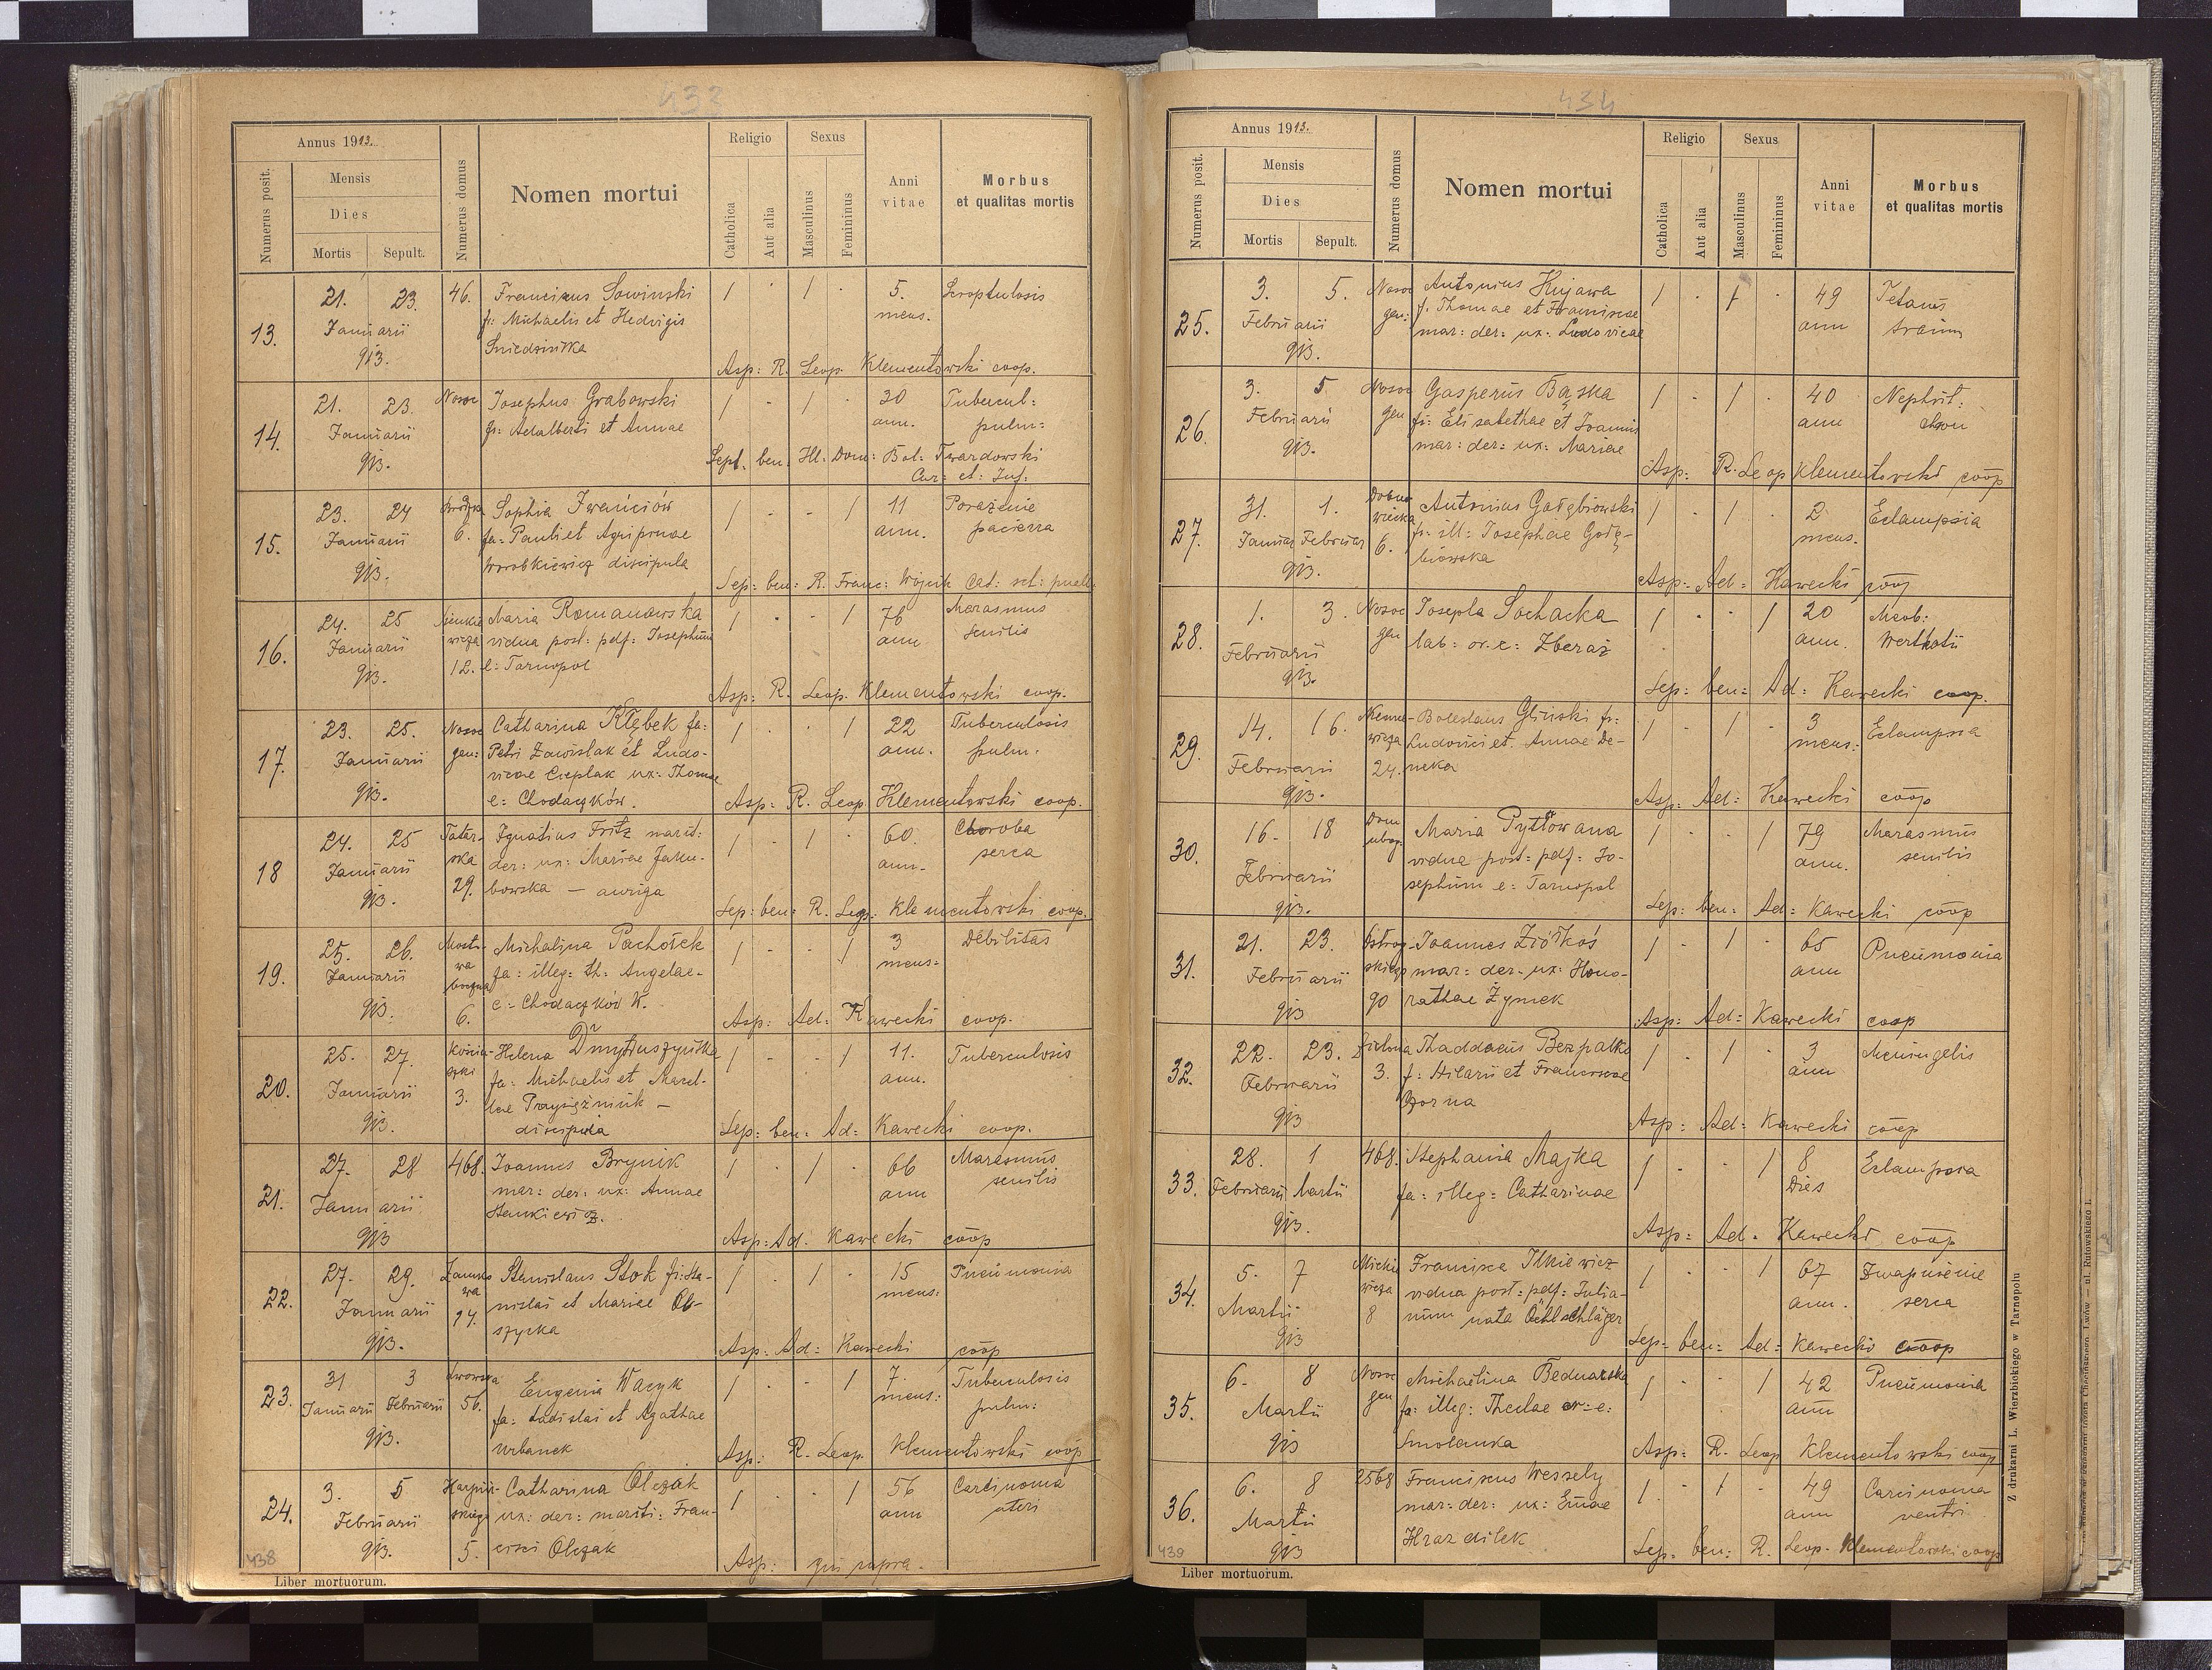 433
Annus 1913.
Numerus posit.
Mensis
Dies
Mortis Sepult.
Numerus domus
Nomen mortui
Religio
Catholica
Aut alia
Sexus
Masculinus
Femininus
Anni vitae
Morbus
et qualitas mortis
13. 21. 23. Januarii 913. 46. Franciscus Sowinski 1 · 1 · 5. mens. Scroptulosis
fi: Michaelis et Hedvigis
Asp: R. Leop. Klementowski coop.
14. 21. 23. Januarii 913. Nosoc Josephus Grabowski 1 - 1 · 30 ann. Tubercul: pulm:
fi: Adalberti et Annae
Sept. ben. Ill. Dom: Bol: Twardowski
Cur: et: Inf:
15. 23. 24 Januarii 913. 6. Sophia Iwańciów 1 - - 1 11 ann. Porażenie pacierza
fa: Pauli et Agripinae
Worobkiewicz discipula
Sep: ben: R. Franc: Wójcik Cat: scl: puell.
16. 24. 25 Januarii 913. Sienkiewicza 12. Maria Romanowska 1 · - 1 76 ann Marasmus senilis
vidua post: pdf: Josephum
e: Tarnopol
Asp: R. Leop. Klementowski coop.
17. 23. 25. Januarii 913. Nosoc gen: Catharina Kłębek fa: 1 · · 1 22 ann. Tuberculosis pulm.
Petri Zawislak et Ludo-
vicae Cieplak ux: Thomae
e: Chodaczków.
Asp: R. Leop Klementowski coop.
18 24. 25 Januarii 913. Tatarska 29. Ignatius Fritz marit: 1 - 1 · 60. ann. Choroba serca
der: ux: Mariae Jaku-
bowska — auriga
Sep: ben: R. Leop: Klementowski coop.
19. 25. 26. Januarii 913. Mostowa boczna 6. Michalina Pachołek 1 - - 1 3 mens: Debilitas
fa: illeg: th: Angelae.
e: Chodaczków W.
Asp: Ad: Kawecki coop.
20. 25. 27. Januarii 913. 3. Helena Dmytruszyńska 1 - - 1 11. ann. Tuberculosis
fa: Michaelis et Marel-
lae Przysiężniuk —
discipula
Sep: ben: Ad: Kawecki coop.
21. 27. 28 Januarii 913 468. Joannes Brynik 1 - 1 · 66 ann Marasmus senilis
mar: der: ux: Annae
Stankiewicz.
Asp: Ad. Kawecki coop
22. 27. 29. Januarii 913. Zamkowa 14. Stanislaus Stok fi: Sta- 1 - 1 · 15 mens: Pneumonia
nislai et Mariae Ol-
szycka
Asp: Ad: Kawecki coop
23. 31 3 Januarii Februarii 913. Lwowska 56. Eugenia Wacyk 1 - - 1 7. mens: Tuberculosis pulm:
fa: Ladislai et Agathae
Urbanek
Asp: R. Leop. Klementowski coop
24. 3. 5 Februarii 913. 5. Catharina Olczak 1 - - 1 56 ann Carcinoma uteri
ux: der: mariti: Fran-
cisci Olczak
Asp: qui supra.
438
Liber mortuorum.
434
Annus 1913.
Numerus posit.
Mensis
Dies
Mortis Sepult.
Numerus domus
Nomen mortui
Religio
Catholica
Aut alia
Sexus
Masculinus
Femininus
Anni vitae
Morbus
et qualitas mortis
25. 3. 5. Februarii 913. Nosoc gen: Antonius Kujawa 1 · 1 · 49 ann Tetanus
f. Thomae et Franciscae
mar: der: ux: Ludovicae
26. 3. 5 Februarii 913. Nosoc gen Gasperus Bąska 1 · 1 · 40 ann Nephrit: chron
fi: Elisabethae et Joannis
mar: der: ux: Mariae
Asp: R. Leop Klementowski coop
27. 31. 1. Januar Februar 913. 6. Antonius Gołębiowski 1 - 1 · 2 mens. Eclampsia
fi: ill: Josephae Gołę-
biowska
Asp: Ad: Kawecki coop
28. 1. 3. Februarii 913. Nosoc gen Josepha Sochacka 1 · · 1 20 ann. Morb: Werlhofii
lab: or. e: Zbaraż
Sep: ben: Ad: Kawecki coop.
29. 14. 16. Februarii 913. 24. Boleslaus Gliński fi: 1 - 1 - 3 mens: Eclampsia
Ludovici et Annae De-
neka
Asp: Ad: Kawecki coop
30. 16. 18 Februarii 913. Dom ubog. Maria Pytlowana 1 - - 1 79 ann. Marasmus senilis
vidua post: pdf: Jo-
sephum e: Tarnopol
Sep: ben: Ad: Kawecki coop
31. 21. 23. Februarii 913 Ostrogskiego 90 Joannes Ziółkoś 1 - 1 · 65 ann Pneumonia
mar: der: ux: Hono-
rathae Żymek
Asp: Ad: Kawecki coop
32. 22. 23. Februarii 913 Zielona 3. Thaddaeus Bezpalko 1 - 1 · 3 ann Meningelis
f: Hilarii et Franciscae
Asp: Ad: Kawecki coop
33. 28. 1 Februarii Martii 913. 468. Stephania Majka 1 - - 1 8 Dies Eclampsia
fa: illeg: Catharinae
Asp: Ad. Kawecki coop
34. 5. 7 Martii 913 Mickiewicza 8 Francisca Ilkiewicz 1 - - 1 67 ann. Zwapnienie serca
vidua post: pdf: Julia-
num nata Öehlschläger
Sep: ben: Ad: Kawecki coop
35. 6. 8 Martii 913 Nosoc gen Michaelina Bednarska 1 · · 1 42 ann Pneumonia
fa: illeg: Theclae or: e:
Smolanka
Asp: R. Leop Klementowski coop
36. 6. 8 Martii 913 2568 Franciscus Wessely 1 - 1 - 49 ann Carcinoma ventri
mar: der: ux: Emae
Hrazdilek
Sep: ben: R. Leop. Klementowski coop
439
Liber mortuorum.
Z drukarni L. Wierzbickiego w Tarnopolu